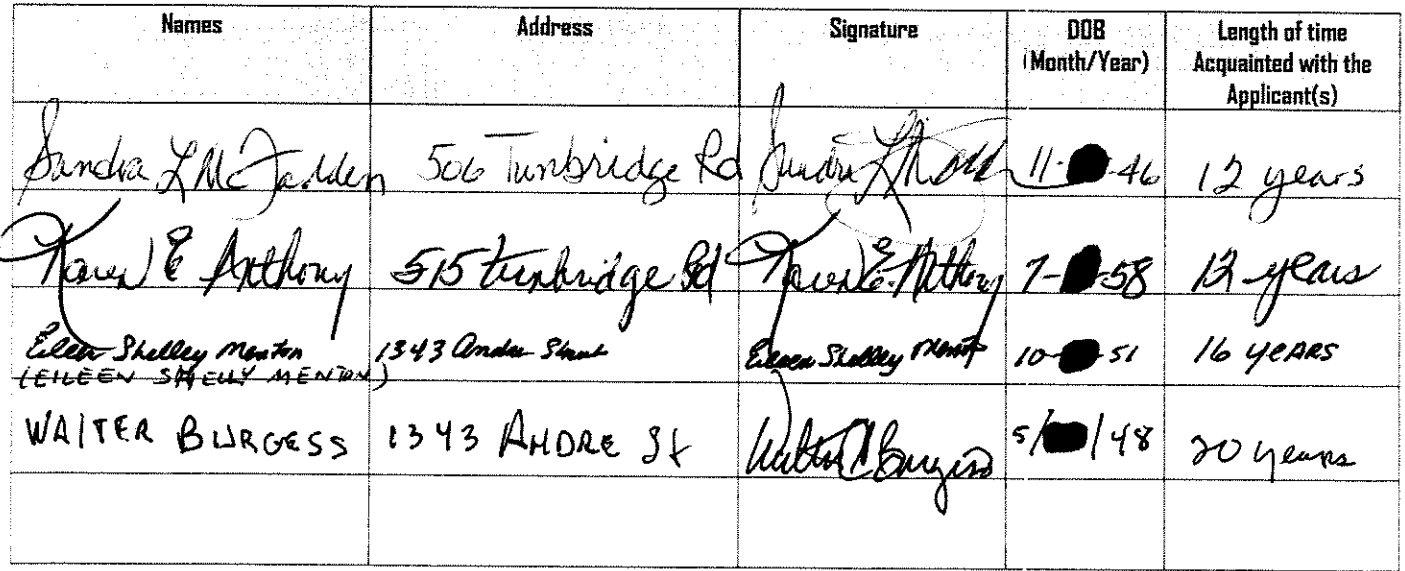 Names Address Signature DOB (Month/Year) Length of time Acquainted with the Applicant(s)
Sandra L McFadden 506 Tunbridge Rd Sandra L 11- -46 12 years
Karen E Anthony 515 Tunbridge Rd Karen E. Anthony 7- -58 12 years
Eileen Shelley Menton 1343 Andre Street Eileen Shelley Menton 10- -51 16 years
(EILEEN SHELLY MENTON)
WALTER BURGESS 1343 ANDRE St Walter Burgess 5/ /48 20 years